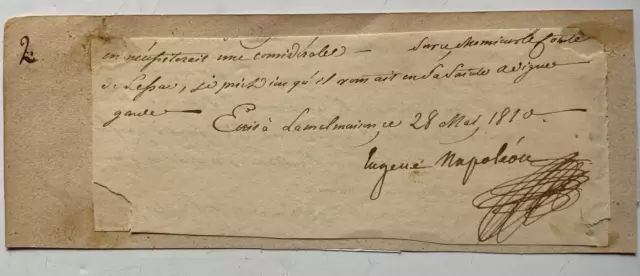 2.
en nécessiterait une considérable — Sur ce, Monsieur le Comte
de Lessac, je prie Dieu qu'il vous ait en sa Sainte et digne
garde
Ecrit à Lamalmaison, ce 28 Mai, 1810.
Eugene Napoléon